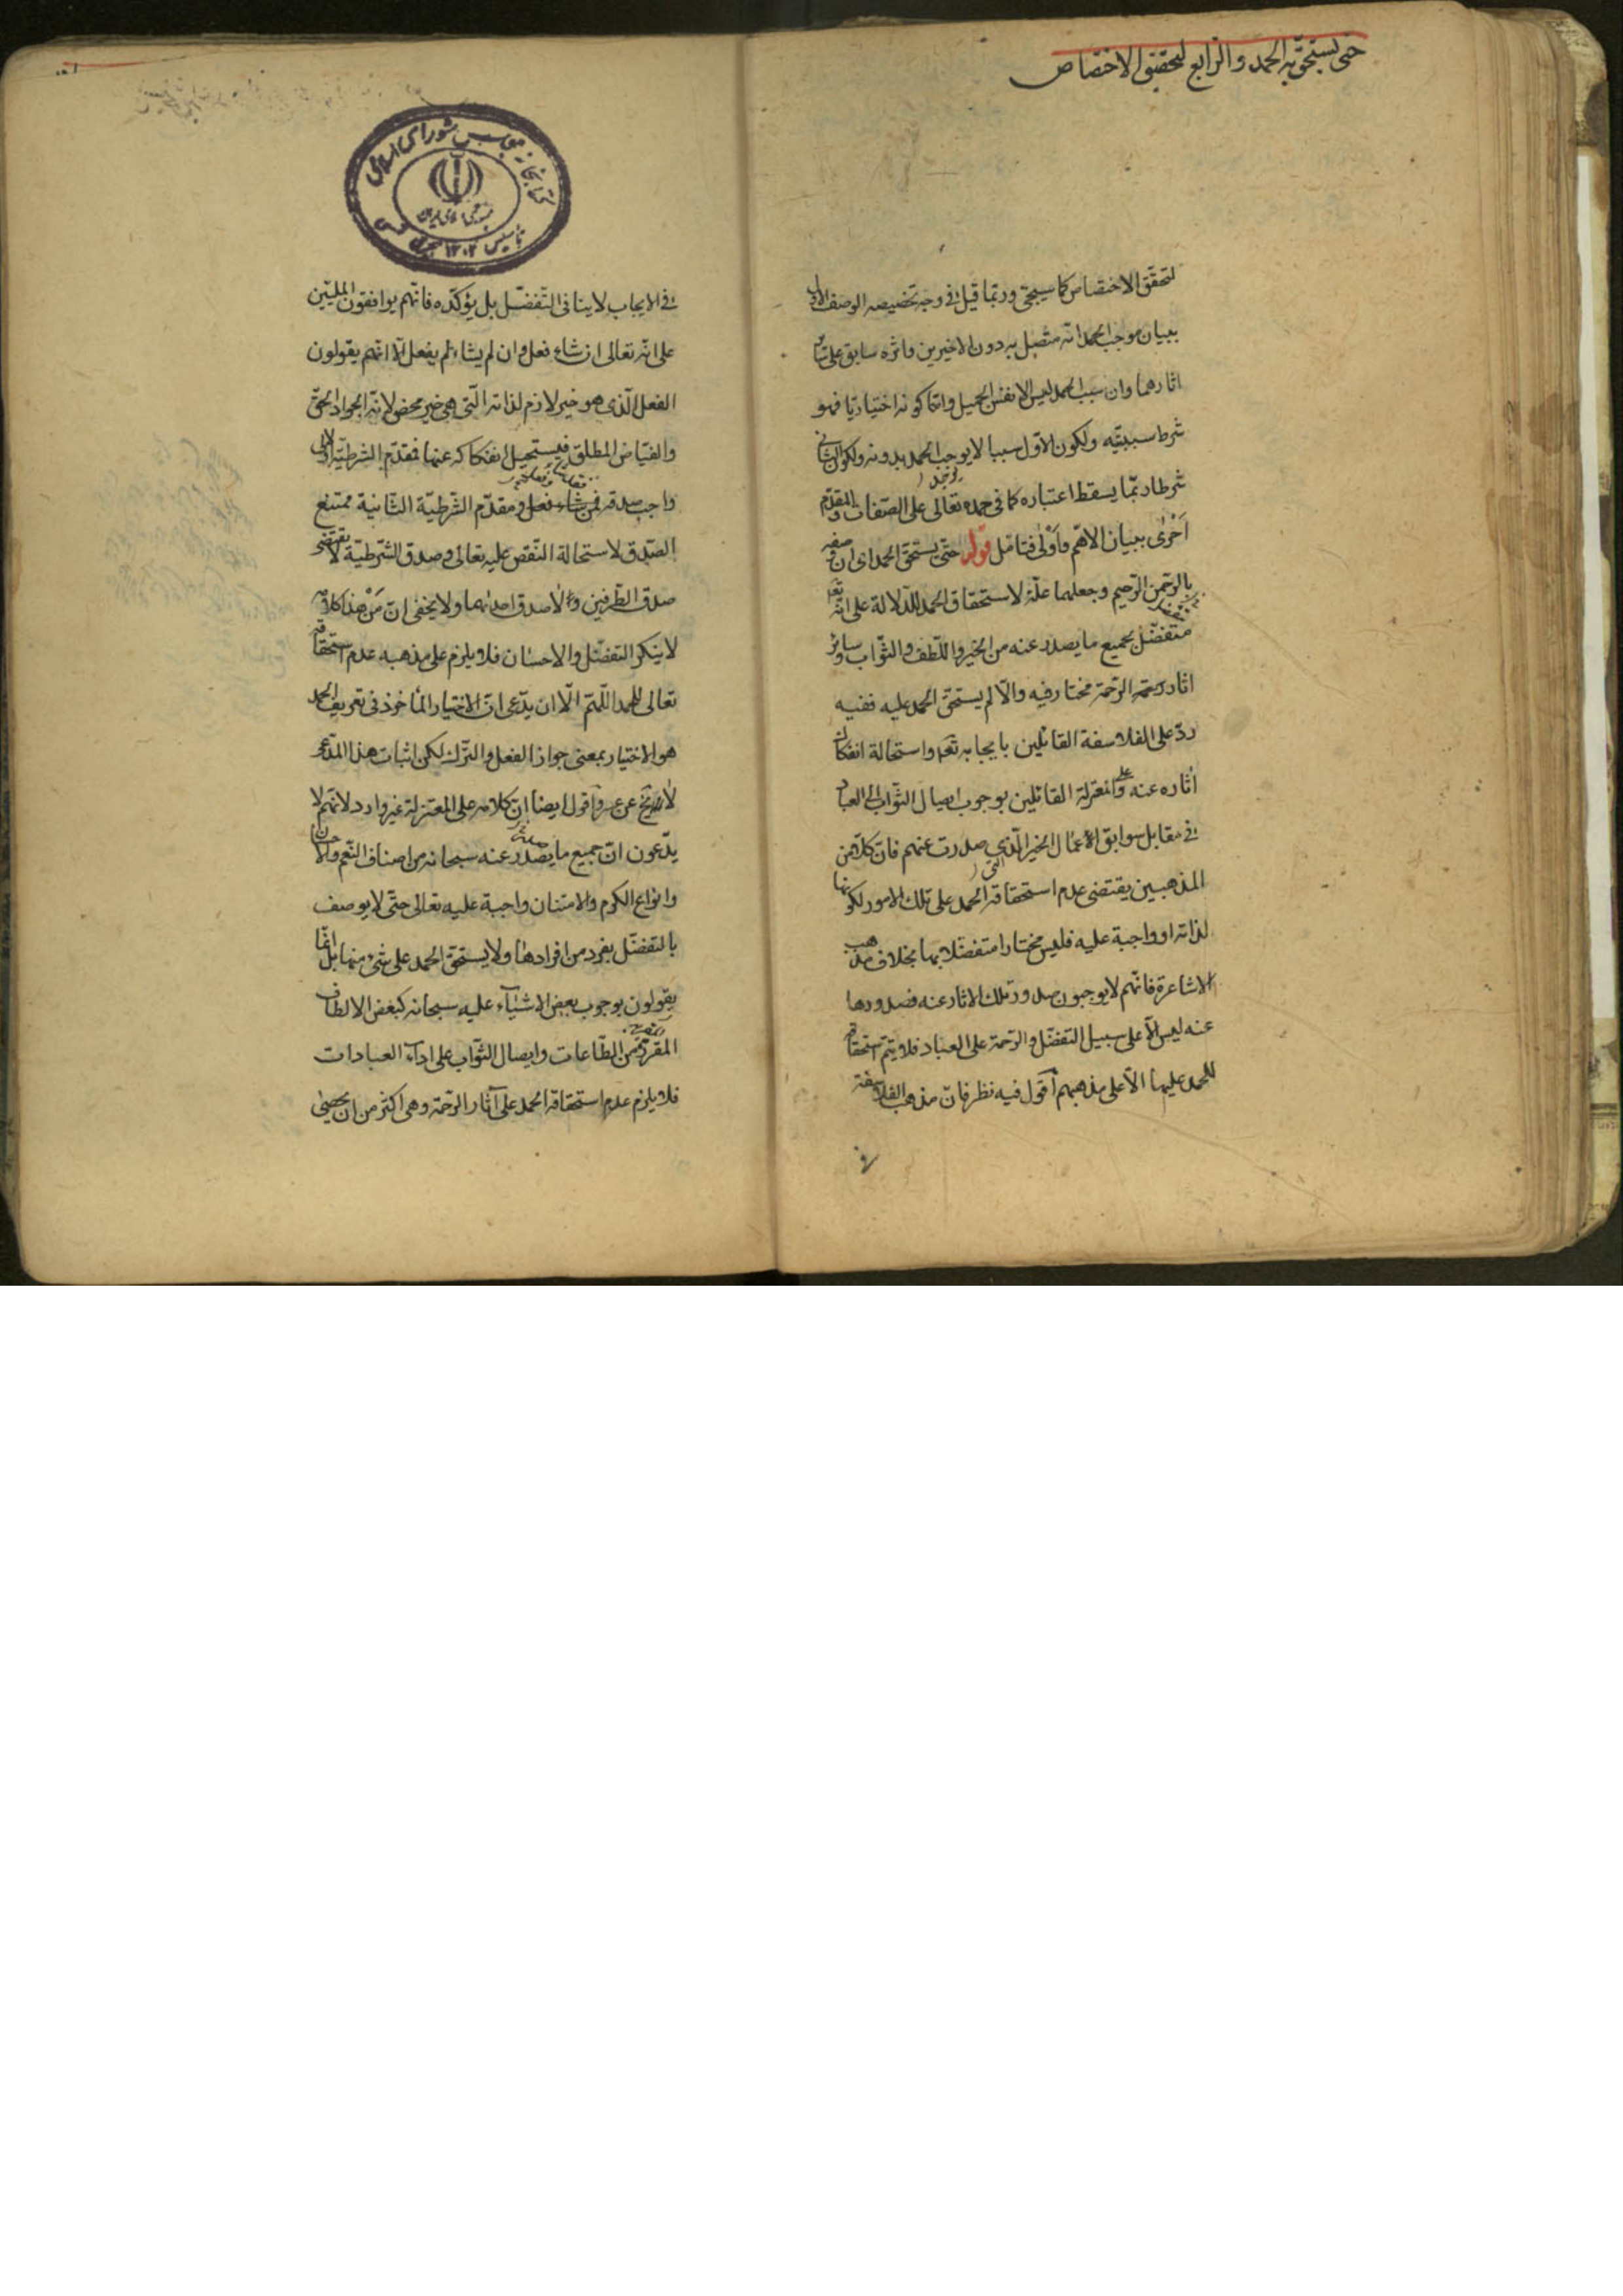 حتى يستحق به الحمد والرابع لتحقيق الاختصاص
لتحقق الاختصاص كما سيجئ وربما قيل في وجه تخصيصه الوصف الاول
ببيان موجب الحمد انه متصل به دون الاخيرين واثره سابق على
اثارهما وان سبب الحمد ليس الا نفس الجميل وانما كونه اختياريا فهو
شرط سببيته ولكون الاول سببا لا يوجب الحمد بدونه ولكون الثاني
شرطا ربما يسقط اعتباره كما في حمده تعالى على الصفات والمقدم
اخرى ببيان الاهم واولى فتامل قوله حتى يستحق الحمد اى ان وصفه
بالرحمن الرحيم وجعلهما علة لاستحقاق الحمد للدلالة على انه تعالى
متفضل بجميع ما يصدر عنه من الخير واللطف والثواب وسائر
اثار الرحمة مختار فيه والّا لم يستحق الحمد عليه ففيه
ردّ على الفلاسفة القائلين بايجابه تعالى واستحالة انفكاك
أثاره عنه وعلى المعتزلة القائلين بوجوب ايصال الثواب الى العباد
في مقابل سوابق الأعمال الخير الذي صدرت عنهم فان كلا من
المذهبين يقتضى عدم استحقاقه الحمد على تلك الامور لكونها
لذاته او واجبة عليه فليس مختارا متفضلا بها بخلاف مذهب
الاشاعرة فانهم لا يوجبون صدور تلك الاثار عنه فصدورها
عنه ليس الّا على سبيل التفضل والرحمة على العباد فلا يتم استحقاقه
للحمد عليها الّا على مذهبهم أقول فيه نظر فان مذهب الفلاسفة
كتابخانه مجلس شورای اسلامی
جمهوری اسلامی ایران
تأسیس ۱۳۰۲ هجری شمسی
في الايجاب لا ينافى التفضّل بل يؤكده فانهم يوافقون المليّين
على انه تعالى ان شاء فعل وان لم يشاء لم يفعل الّا انهم يقولون
الفعل الّذى هو خير لازم لذاته الّتى هى خير محض لانه الجواد الحق
والفيّاض المطلق فيستحيل انفكاكه عنها فمقدّم الشرطيّة الاولى
واجب صدقه فمن شاء فعل ومقدّم الشرطيّة الثّانية ممتنع
الصّدق لاستحالة النّقص عليه تعالى وصدق الشرطيّة لا يقتضى
صدق الطّرفين ولا صدق احدهما ولا يخفى ان مَنْ هذا كلامه
لا ينكر التفضّل والاحسان فلا يلزم على مذهبه عدم استحقاقه
تعالى للحمد اللّهمّ الّا ان يدّعى انّ الاختيار المأخوذ في تعريف الحمد
هو الاختيار بمعنى جواز الفعل والترك لكن اثبات هذا المدّعى
لا يخ عن عسر وأقول ايضا ان كلامه على المعتزلة غير وارد لانهم لا
يدّعون انّ جميع ما يصدر عنه سبحانه من اصناف النّعم والاحسان
وانواع الكرم والامتنان واجبة عليه تعالى حتّى لا يوصف
بالتفضّل بفرد من افرادها ولا يستحق الحمد على شئ منها بل انّما
يقولون بوجوب بعض الاشياء عليه سبحانه كبعض الالطاف
المقربة من الطّاعات وايصال الثّواب على اداء العبادات
فلا يلزم عدم استحقاقه الحمد على آثار الرّحمة وهى اكثر من ان يحصى